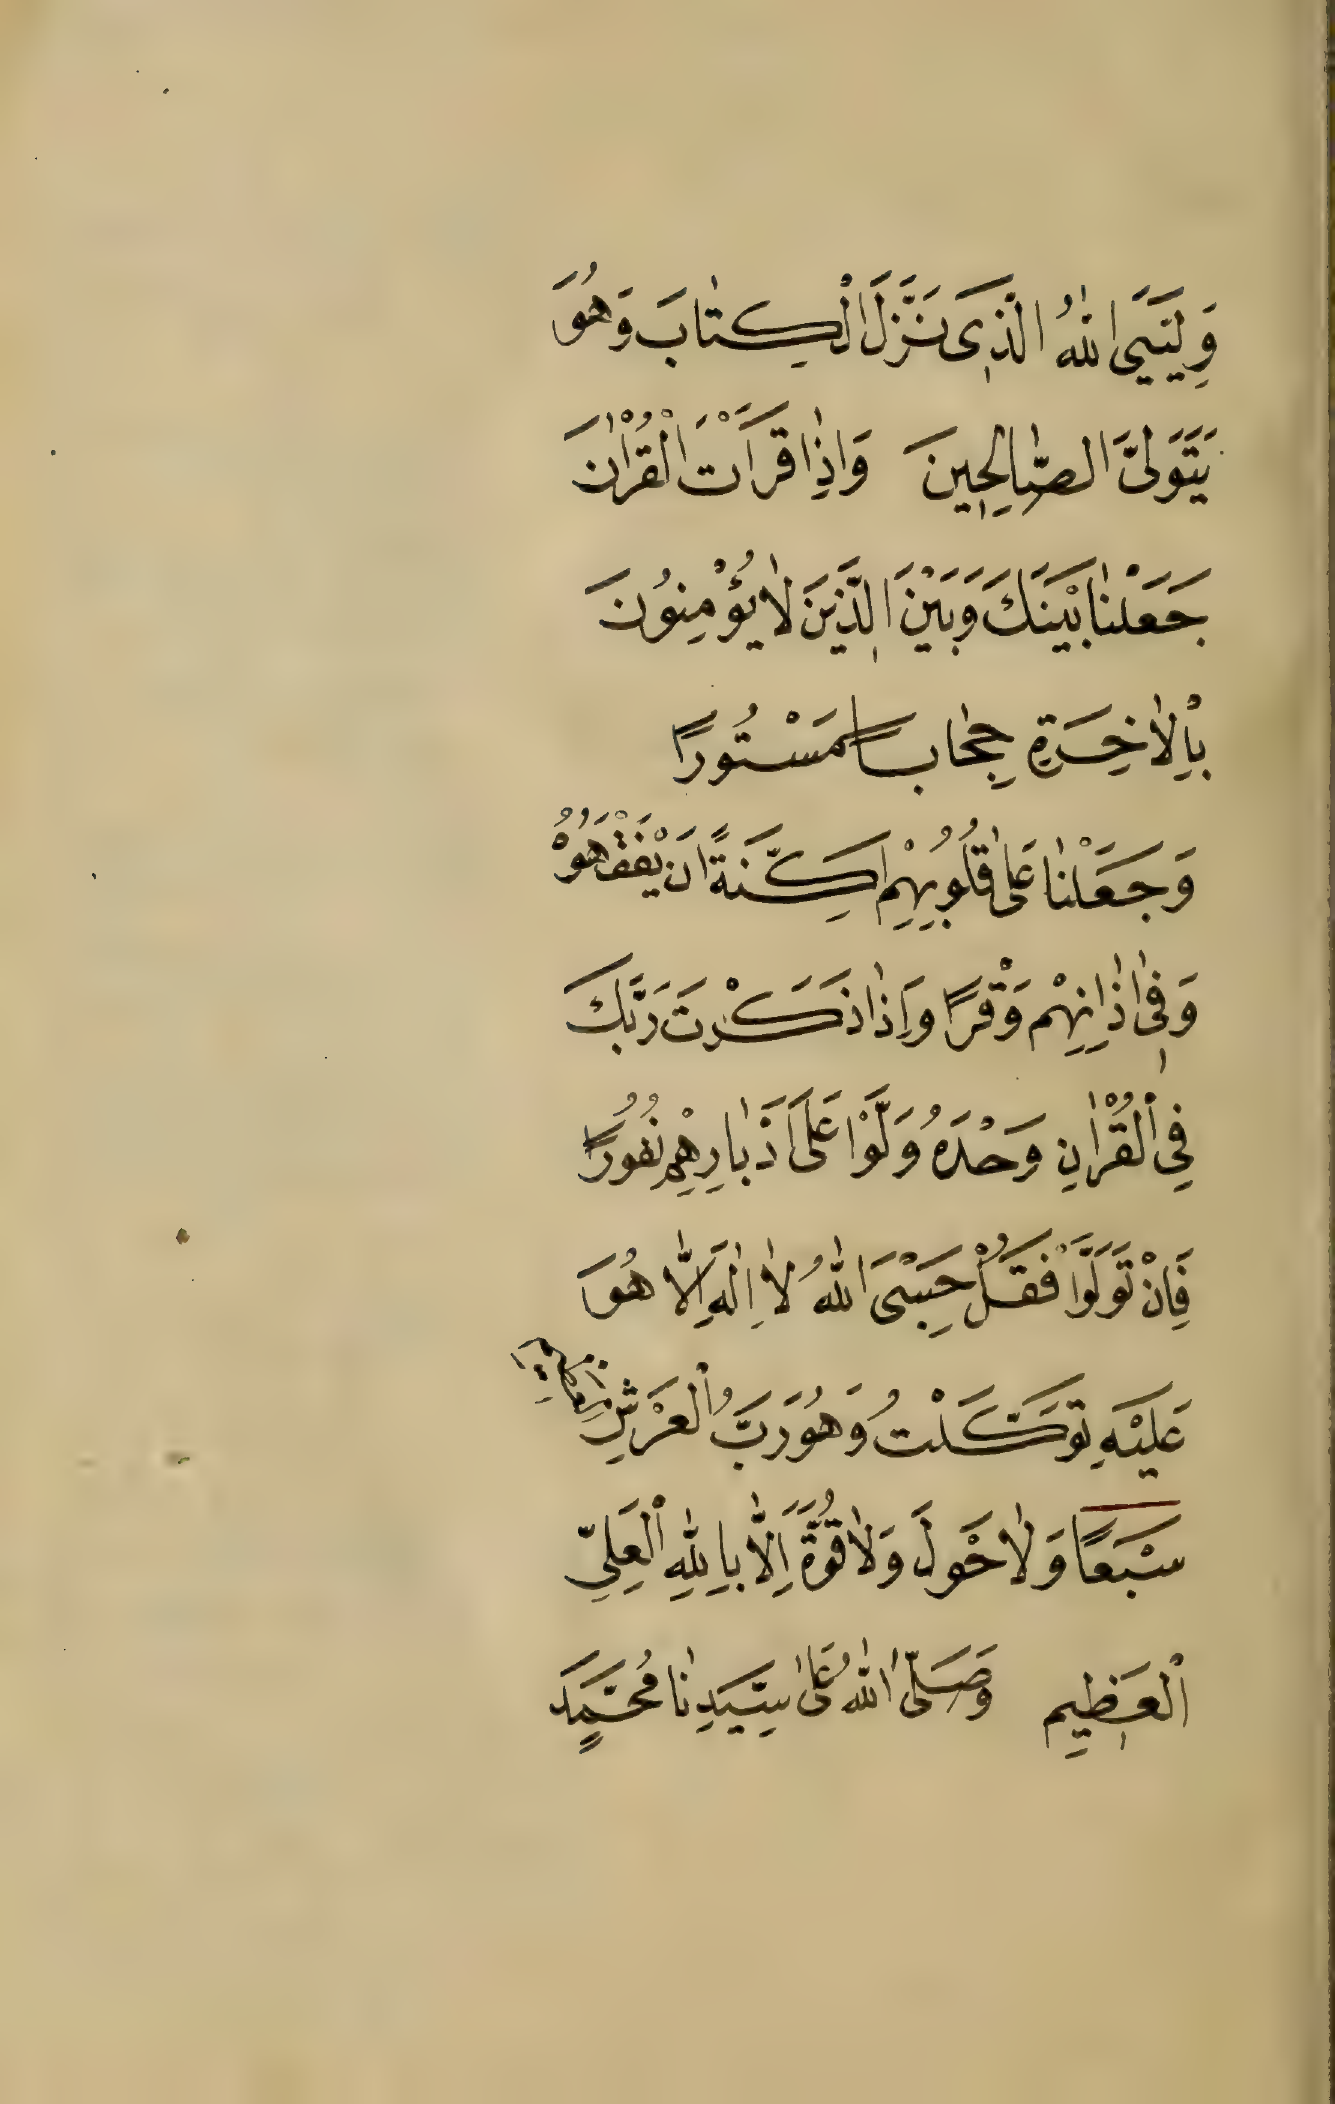 وَلِيَّيَ اللهُ الَّذِي نَزَّلَ الْكِتَابَ وَهُوَ
يَتَوَلَّى الصَّالِحِينَ وَاِذَا قَرَأْتَ الْقُرْاٰنَ
جَعَلْنَا بَيْنَكَ وَبَيْنَ الَّذِينَ لَا يُؤْمِنُونَ
بِالْاٰخِرَةِ حِجَابًا مَسْتُورًا
وَجَعَلْنَا عَلٰى قُلُوبِهِمْ اَكِنَّةً اَنْ يَفْقَهُوهُ
وَفِي اٰذَانِهِمْ وَقْرًا وَاِذَا ذَكَرْتَ رَبَّكَ
فِي الْقُرْاٰنِ وَحْدَهُ وَلَّوْا عَلٰى اَدْبَارِهِمْ نُفُورًا
فَاِنْ تَوَلَّوْا فَقُلْ حَسْبِيَ اللهُ لَا اِلٰهَ اِلَّا هُوَ
عَلَيْهِ تَوَكَّلْتُ وَهُوَ رَبُّ الْعَرْشِ الْعَظِيمِ
سَبْعًا وَلَا حَوْلَ وَلَا قُوَّةَ اِلَّا بِاللهِ الْعَلِيِّ
الْعَظِيمِ وَصَلَّى اللهُ عَلٰى سَيِّدِنَا مُحَمَّدٍ